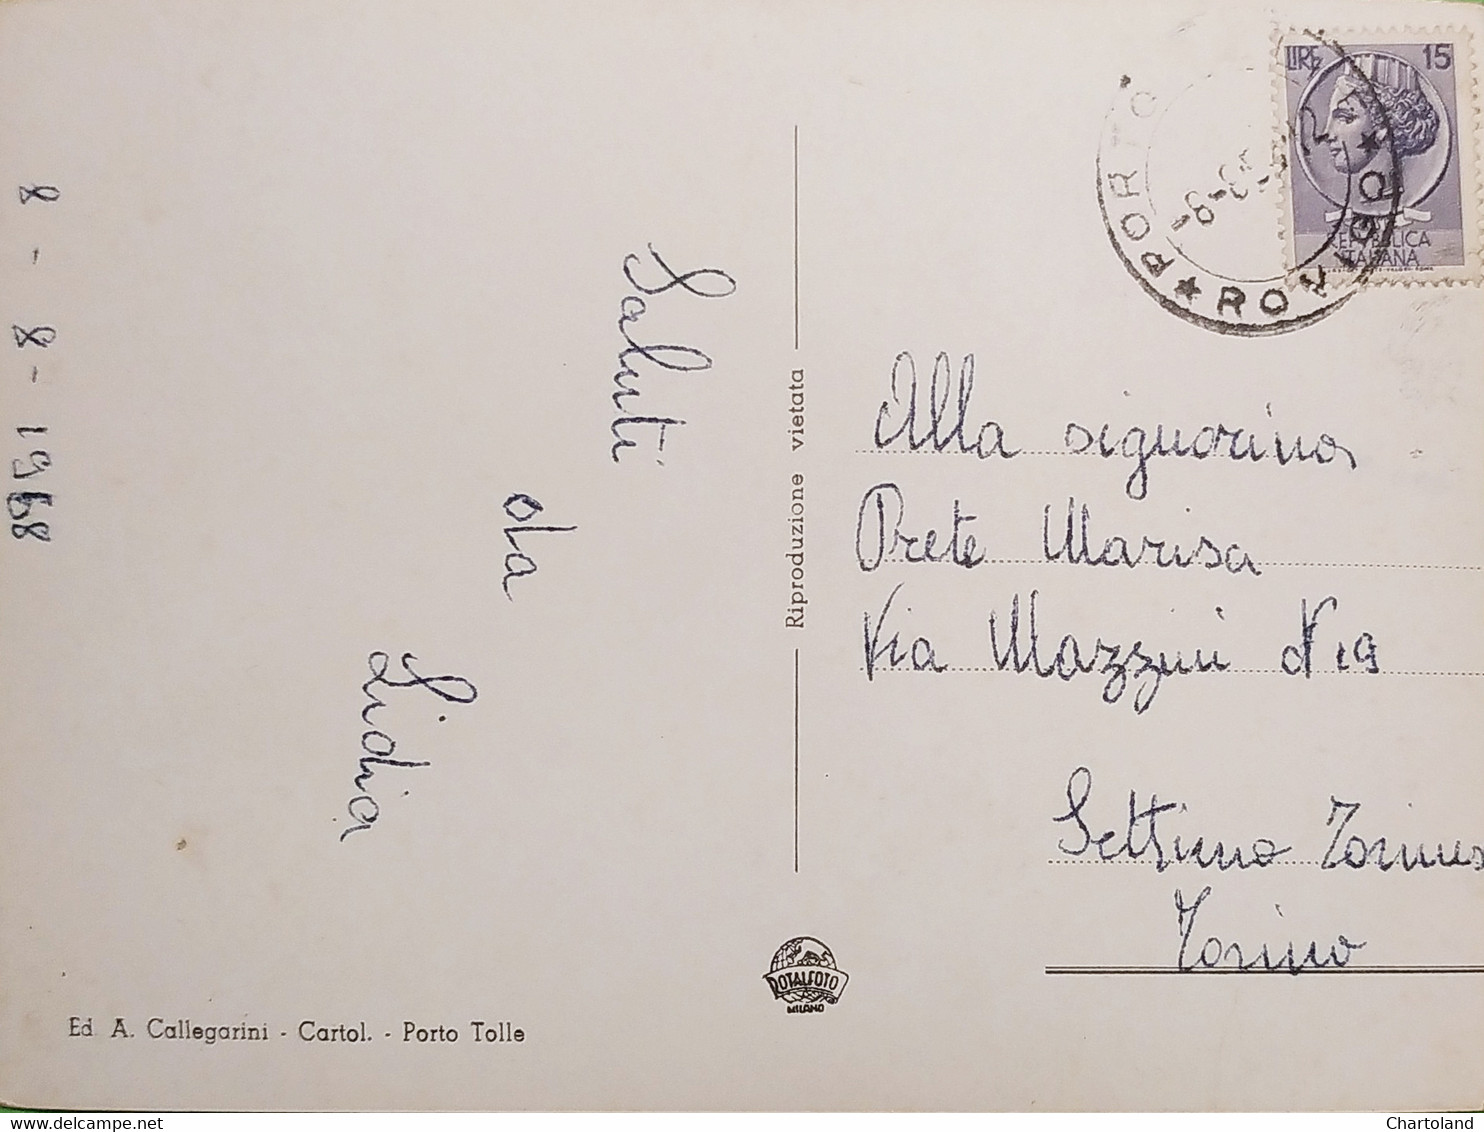 8 - 8 - 1968
Saluti
da
Lidia
Ed. A. Callegarini - Cartol. - Porto Tolle
Riproduzione vietata
ROTALFOTO
MILANO
LIRE 15
REPUBBLICA
ITALIANA
PORTO
★ ROVIGO ★
-8-8
Alla signorina
Prete Marisa
Via Mazzini N 19
Settimo Torines
Torino
Chartoland